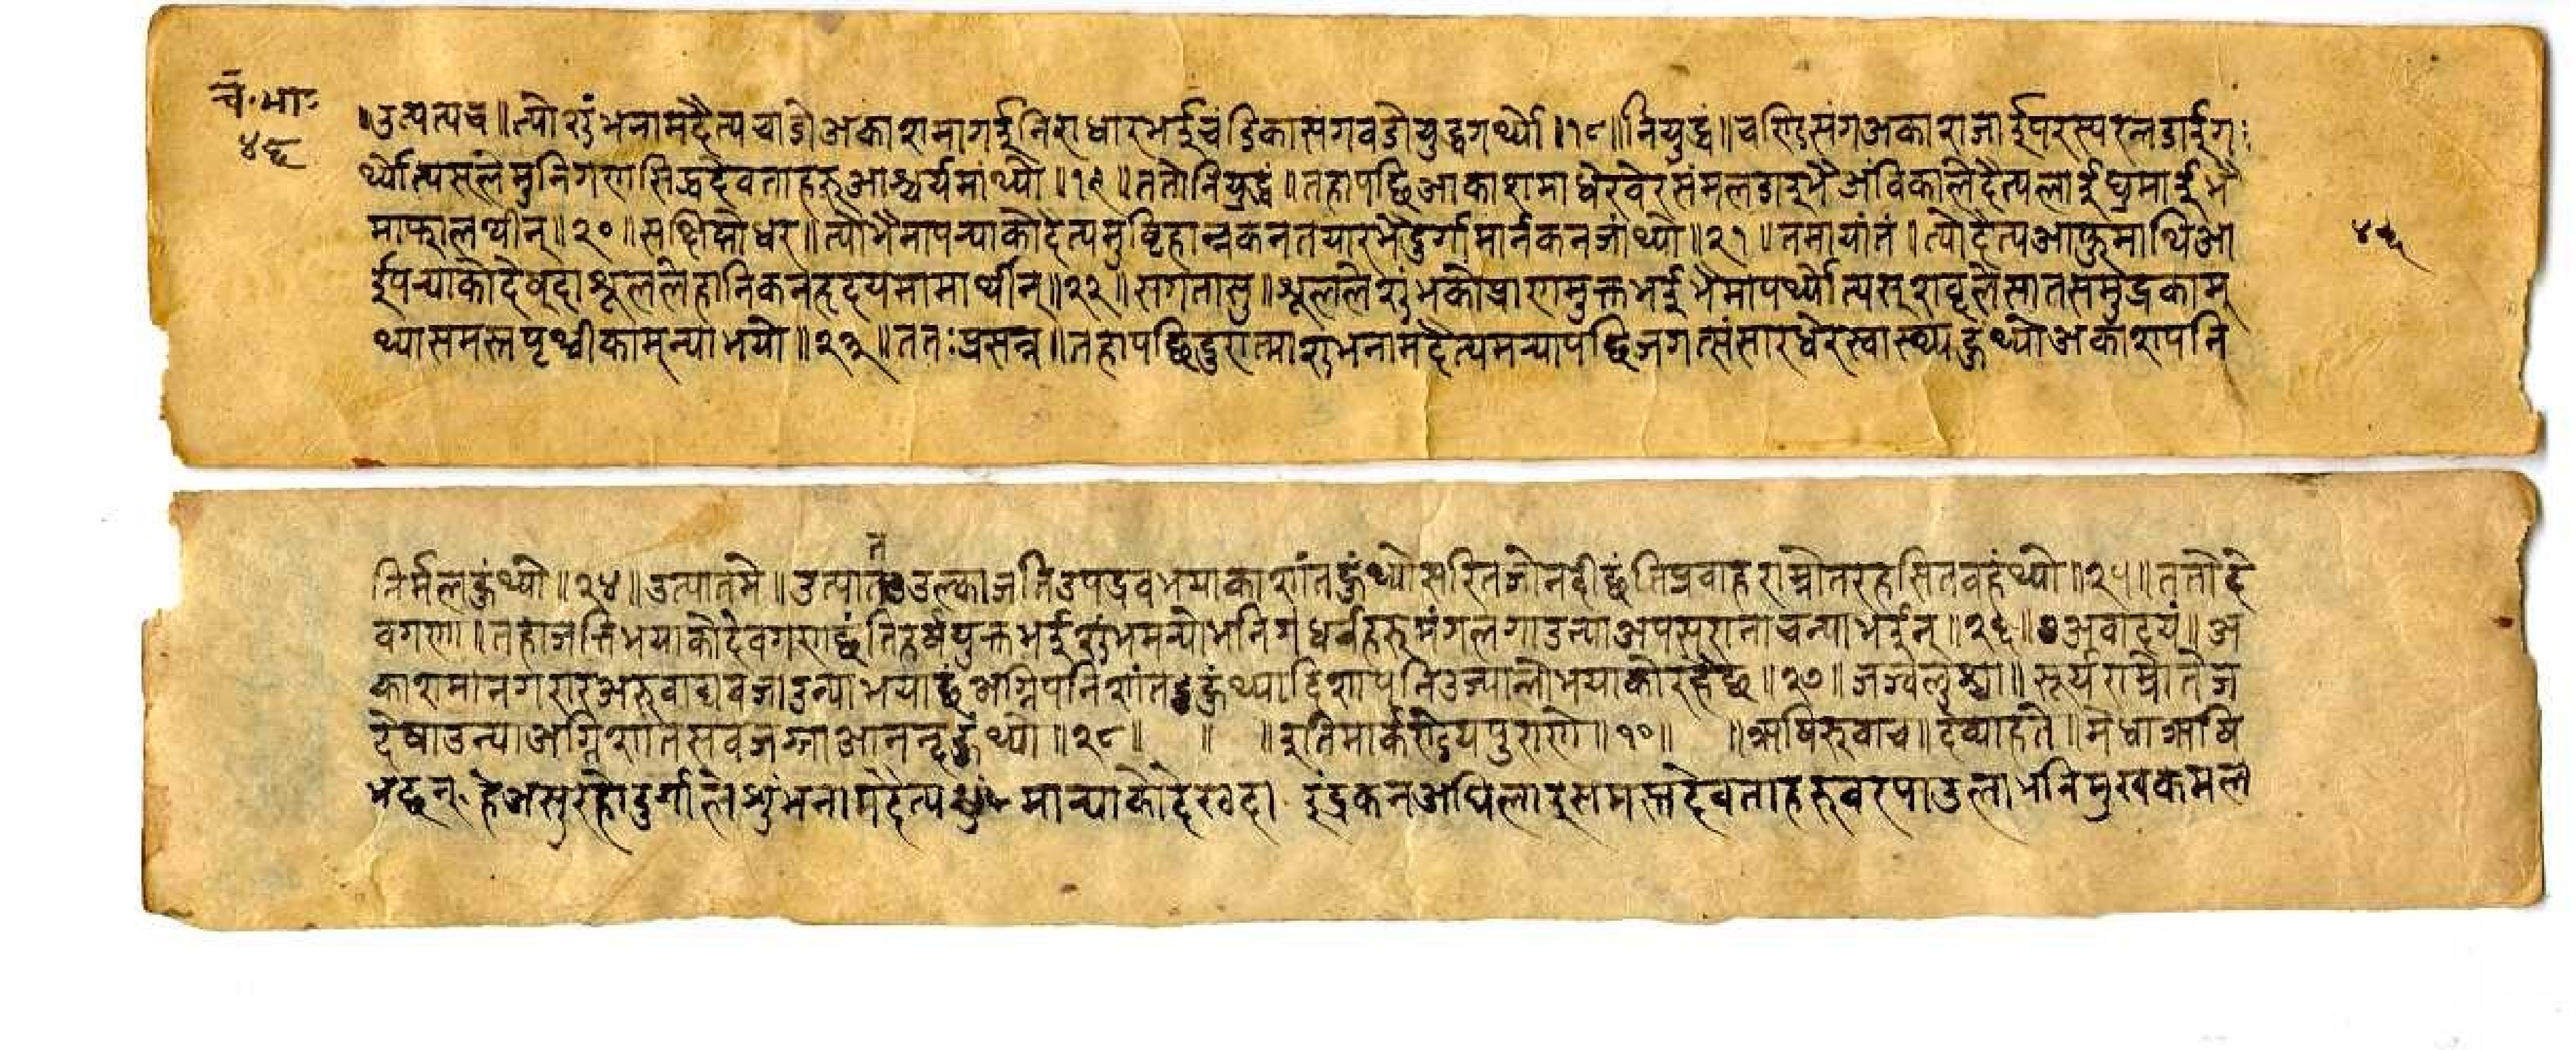 चं.भा.
४६
॥उत्पत्यच॥त्यो शुंभनामदैत्य चाडो अकाशमा गई निराधार भई चंडिका संग वडो युद्ध गर्थ्यो।१८॥नियुद्धं॥चण्डि संग अकाश जाई परस्पर लडाई ग
र्थ्यो त्यसले मुनिगण सिद्ध देवताहरु आश्चर्य मांथ्यो॥१९॥ततो नियुद्धं॥तहा पछि आकाशमा धेरै वेर संम लडाइ भै अंविकाले दैत्यलाई घुमाई भै
मा फाल थीन्॥२०॥सक्षिप्तो धर॥त्यो भैमा पन्याको दैत्य मुठि हान्नकन तयार भै दुर्गा मार्नकन जांथ्यो॥२१॥तमायांतं।त्यो दैत्य आफुमाथि आ
ईपन्याको देष्दा शूलले हानिकन हृदयमा मार्थीन्॥२२॥सगतासु॥शूलले शुंभको प्राण मुक्त भई भैमा पर्थ्यो त्यस् शब्दले सात समुद्र काम्
थ्या समस्त पृथ्वी काम्न्या भयो॥२३॥ततःप्रसन्न॥तहा पछि दुरात्मा शुंभनाम दैत्य मन्या पछि जगत्संसार धेरै स्वास्थ्य हुंथ्यो अकाश पनि
४६
निर्मल हुंथ्यो॥२४॥उत्पातमे॥उत्पात उल्का जति उपद्रव भयाका शांत हुंथ्यो सरित जो नदी छंति प्रवाह राम्रो तरहसित वहंथ्यो॥२५॥ततो दे
न
वगण।तहां जति भयाको देवगण छंति हर्षयुक्त भई शुंभ मन्यो भनि गंधर्वहरु मंगल गाउन्या अपस्सरा नाचन्या भईन्॥२६॥अवादयं॥अ
काशमा नगरा र अरु वाद्य वजाउन्या भया छं अग्नि पनि शांत हुंथ्या दिशा पनि उज्यालो भयाको रहेछ॥२७॥जज्वलुश्चा॥सूर्य राम्रो तेज
देषाउन्या अग्नि शांति सव जग्गा आनन्द हुंथ्यो॥२८॥ ॥ ॥इति मार्कण्डेयपुराणे॥१०॥ ॥ऋषिरुवाच॥देव्याहते॥मेधा ऋषि
भंछन्. हे असुर हो दुर्गाले शुंभनाम दैत्य मान्याको देखदा इंद्रकन अघिलाइ समस्त देवताहरु वर पाउला भनि मुखकमल